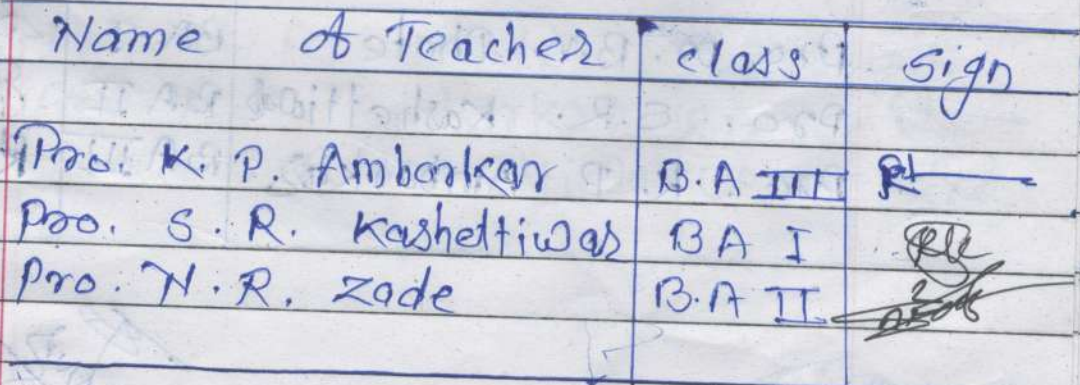 Name of Teacher class Sign
Pro. K. P. Amborkar B.A III
Pro. S. R. Kashettiwar B A I
Pro. N. R. Zade B.A II